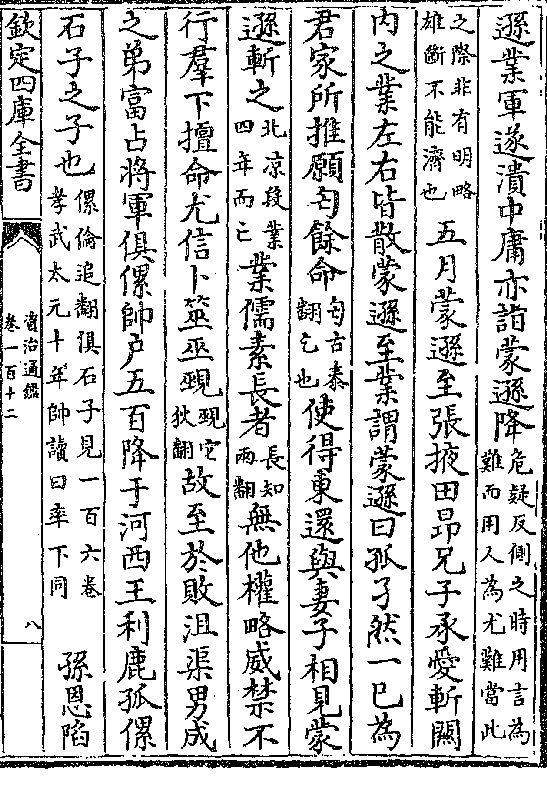 遜業軍遂潰中庸亦詣蒙遜降危疑反側之時用言為
難而用人為尤難當此
之際非有明略
雄斷不能濟也五月蒙遜至張掖田昂兄子承愛斬關
内之業左右皆散蒙遜至業謂蒙遜曰孤孑然一已為
君家所推願匄餘命匄古泰
翻乞也使得東還與妻子相見蒙
遜斬之北凉段業
四年而亡業儒素長者長知
兩翻無他權略威禁不
行羣下擅命尤信卜筮巫覡覡空
狄翻故至於敗沮渠男成
之弟富占將軍俱傫帥户五百降于河西王利鹿孤傫
石子之子也傫倫追翻俱石子見一百六卷
孝武太元十年帥讀曰率下同孫恩陷
欽定四庫全書
資治通鑑
卷一百十二
八